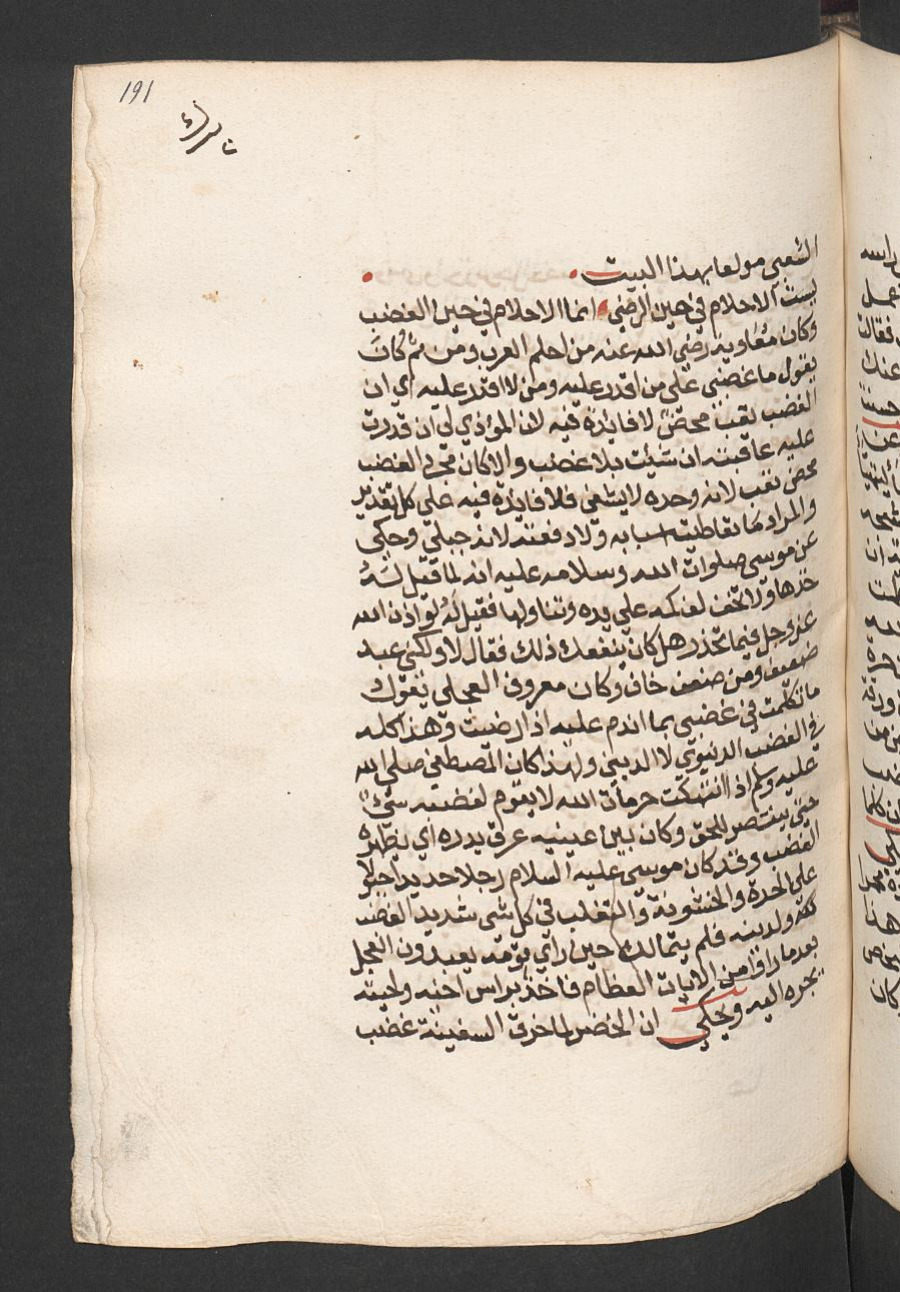 191
الشعبي مولعا بهذا البيت
ليست الاحلام في حين الرضي انما الاحلام في حين الغضب
وكان معاوية رضي الله عنه من احلم العرب ومن ثم كان
يقول ما غضبي علي من اقدر عليه ومن لا اقدر عليه اي ان
الغضب تعب محض لا فايدة فيه لان الموذي لي ان قدرت
عليه عاقبته ان شيئت بلا غضب والا كان مجرد الغضب
محض تعب لانه وحده لا يشفي فلا فايدة فيه علي كل تقدير
والمراد ما تعاطيت اسبابه ولا دفعته لانه جبلي وحكي
عن موسي صلوات الله وسلامه عليه انه لما قيل له
خذها ولا تخف لف كمه علي يده وتناولها فقيل له لو اذن الله
عز وجل فيما تحذر هل كان ينفعك ذلك فقال لا ولكني عبد
ضعيف ومن ضعف خاف وكان معروف العجلي يقول
ما تكلمت في غضبي بما اندم عليه اذا رضيت وهذا كله
في الغضب الدنيوي لا الديني ولهذا كان المصطفي صلي الله
عليه وسلم اذا انتهكت حرمات الله لا يقوم لغضبه شيء
حتي ينتصر للحق وكان بين عينيه عرق يدره اي يظهره
الغضب وقد كان موسي عليه السلام رجلا حديدا مجبولا
علي الحدة والخشونة والتغلب في كل شي شديد الغضب
لله ولدينه فلم يتمالك حين راي قومه يعبدون العجل
بعد ما راوا من الايات العظام فاخذ براس اخيه ولحيته
يجره اليه وحكي ان الخضر لما خرق السفينة غضب